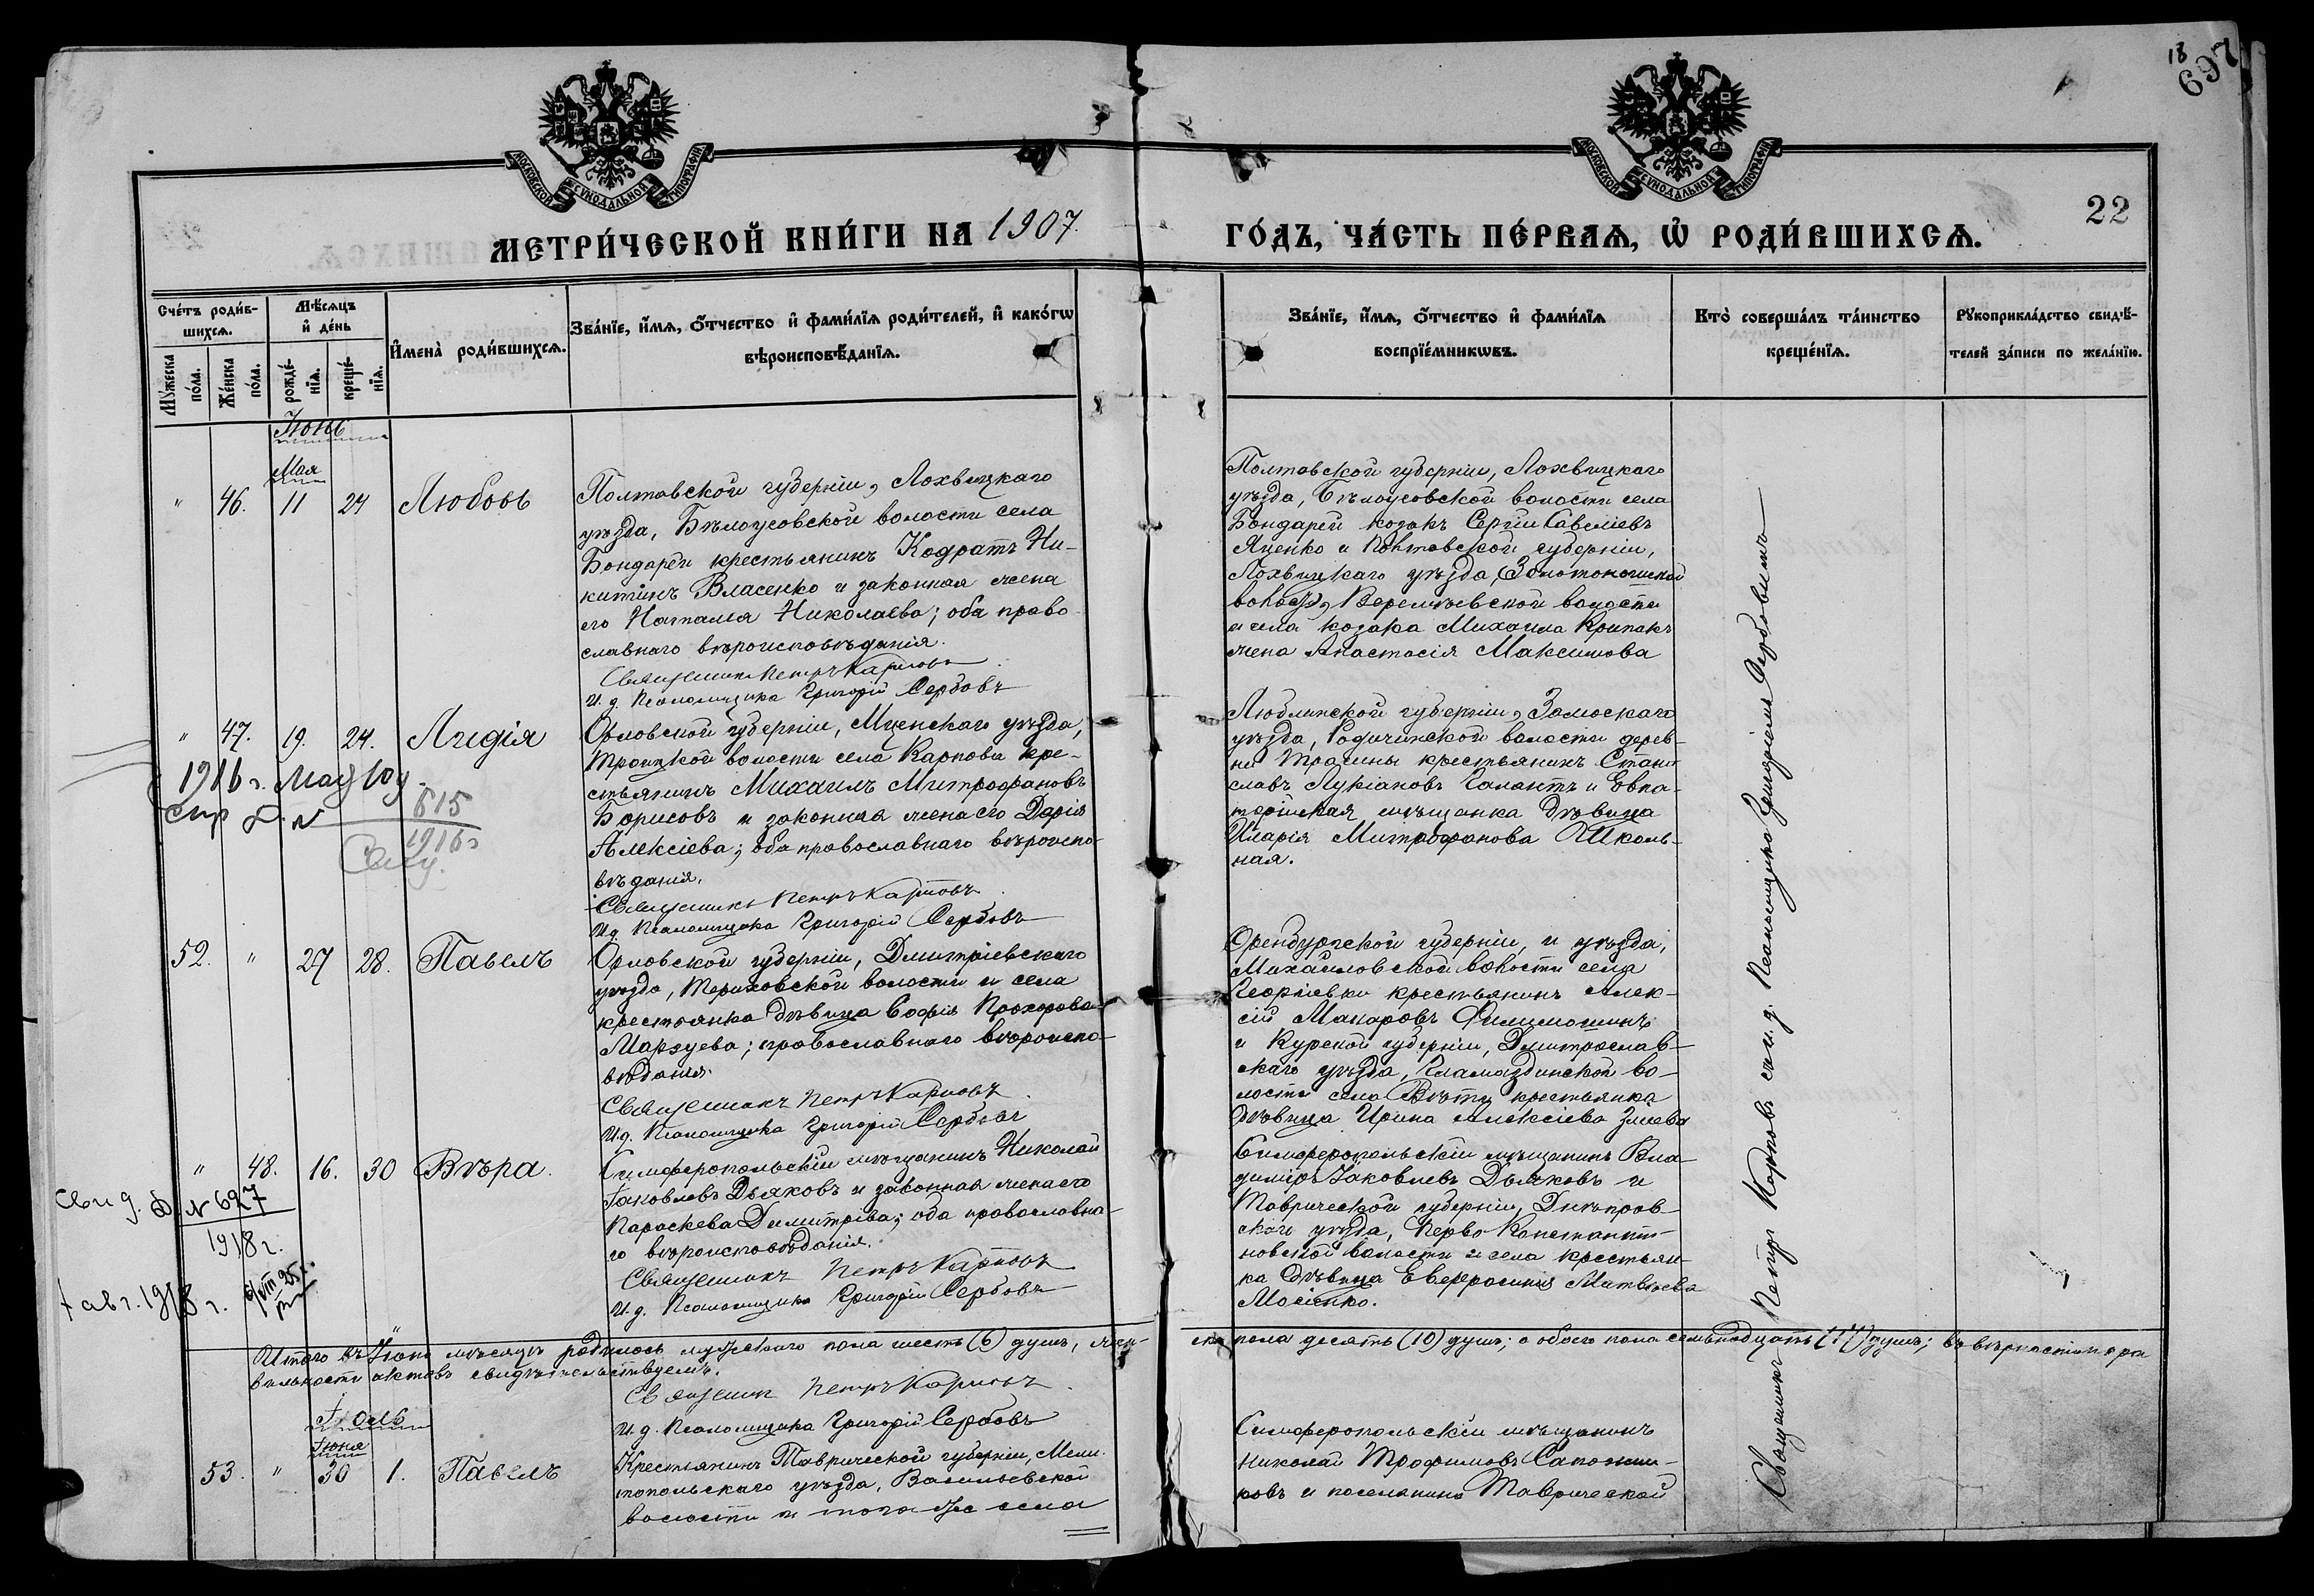 18
697
МОСКОВСКОЙ СѴНОДАЛЬНОЙ ТИПОГРАФІИ
МОСКОВСКОЙ СѴНОДАЛЬНОЙ ТИПОГРАФІИ
22
МЕТРИ́ЧЕСКОЙ КНИ́ГИ НА 1907
ГО́ДЪ, ЧА́СТЬ ПЕ́РВАѦ, Ѡ РОДИ́ВШИХСѦ.
Сче́тъ роди́в-
шихсѧ.
Мꙋ́жеска по́ла.
Же́нска по́ла.
Мѣ́сѧцъ
и҆ де́нь
рожде́-
нїѧ.
креще́-
нїѧ.
И҆мена̀ роди́вшихсѧ.
Зва́нїе, и҆́мѧ, о҆́тчество и҆ фами́лїѧ роди́телей, и҆ како́гѡ
вѣроисповѣ́данїѧ.
Зва́нїе, и҆́мѧ, о҆́тчество и҆ фами́лїѧ
воспрїе́мникѡвъ.
Кто̀ соверша́лъ та́инство
креще́нїѧ.
Рꙋкоприкла́дство свидѣ́-
телей за́писи по жела́нїю.
Іюнь
Мая
" 46. 11 24 Любовь
Полтавской губерніи, Лохвицкаго
уѣзда, Бѣлоусовской волости села
Бондарей крестьянинъ Кодратъ Ни-
китинъ Власенко и законная жена
его Наталія Николаева; оба право
славнаго вѣроисповѣданія.
Священникъ Петръ Карповъ
И. д. Псаломщика Григорій Сербовъ
Полтавской губерніи, Лохвицкаго
уѣзда, Бѣлоусовской волости села
Бондарей козакъ Сергій Савеліевъ
Яценко и Полтавской губерніи,
Лохвицкаго уѣзда,
Веремѣевской волости
и села козака Михаила Крипакъ
жена Анастасія Максимова
" 47. 19. 24. Лидія
1916 г. Мая 10 д.
615
1916 г
Орловской губерніи, Мценскаго уѣзда,
Троицкой волости села Карпова кре-
стьянинъ Михаилъ Митрофановъ
Борисовъ и законная жена его Дарія
Алексіева; оба православнаго вѣроиспо-
вѣданія.
Священникъ Петръ Карповъ
И. д. Псаломщика Григорій Сербовъ
Люблинской губерніи, Замоскаго
уѣзда, волости дерев-
ни крестьянинъ Стани
славъ Лукіановъ Галантъ и Евпа-
торійская мѣщанка дѣвица
Иларія Митрофанова Школь-
ная.
52. " 27 28. Павелъ
Орловской губерніи, Дмитріевскаго
уѣзда, волости и села
крестьянка дѣвица Софія Прохорова
православнаго вѣроиспо-
вѣданія.
Священникъ Петръ Карповъ
И. д. Псаломщика Григорій Сербовъ
Оренбургской губерніи, и уѣзда,
Михайловской волости села
Георгіевки крестьянинъ Алек-
сій Макаровъ Филимошинъ
и Курской губерніи, Дмитрослав-
скаго уѣзда, Гламаздинской во-
лости села крестьянка
дѣвица Ирина Алексіева Зміева
" 48. 16. 30 Вѣра.
Свид. № 627
1918 г.
1918 г.
Симферопольскій мѣщанинъ Николай
Іаковлевъ Дьяковъ и законная жена его
Параскева Димитріева; оба православна-
го вѣроисповѣданія.
Священникъ Петръ Карповъ
И. д. Псаломщика Григорій Сербовъ
Симферопольскій мѣщанинъ Вла-
диміръ Іаковлевъ Дьяковъ и
Таврической губерніи, Днѣпров-
скаго уѣзда, Перво Константи-
новской волости и села крестьян-
ка дѣвица Евфросинія Матвѣева
Мосіенко.
Итого въ Іюнѣ мѣсяцѣ родилось мужскаго пола шесть (6) душъ, жен-
ска пола десять (10) душъ; а обоего пола семьнадцать (17) душъ; въ вѣрности и пра
вильности актовъ свидѣтельствуемъ.
Священникъ Петръ Карповъ
И. д. Псаломщика Григорій Сербовъ
Іюль
Іюня
53. " 30 1. Павелъ
Крестьянинъ Таврической губерніи, Мели-
топольскаго уѣзда, Васильевской
волости и того же села
Симферопольскій мѣщанинъ
Николай Трофимовъ Сапожни-
ковъ и поселянина Таврической
Священникъ Петръ Карповъ съ и. д. Псаломщика Григоріемъ Сербовымъ